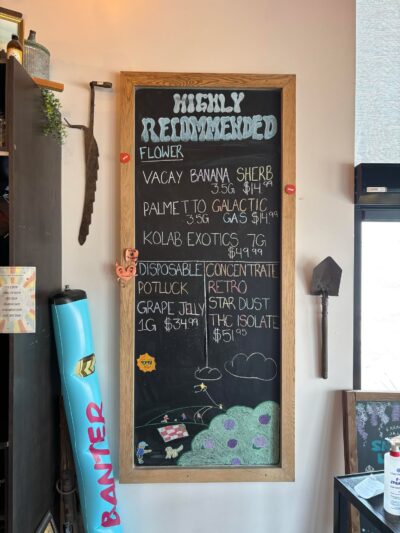 HIGHLY
RECOMMENDED
FLOWER
VACAY BANANA SHERB
3.5G $14.99
PALMETTO GALACTIC
3.5G GAS $14.99
KOLAB EXOTICS 7G
$49.99
DISPOSABLE
POTLUCK
GRAPE JELLY
1G $34.99
CONCENTRATE
RETRO
STAR DUST
THC ISOLATE
$51.95
BANTER